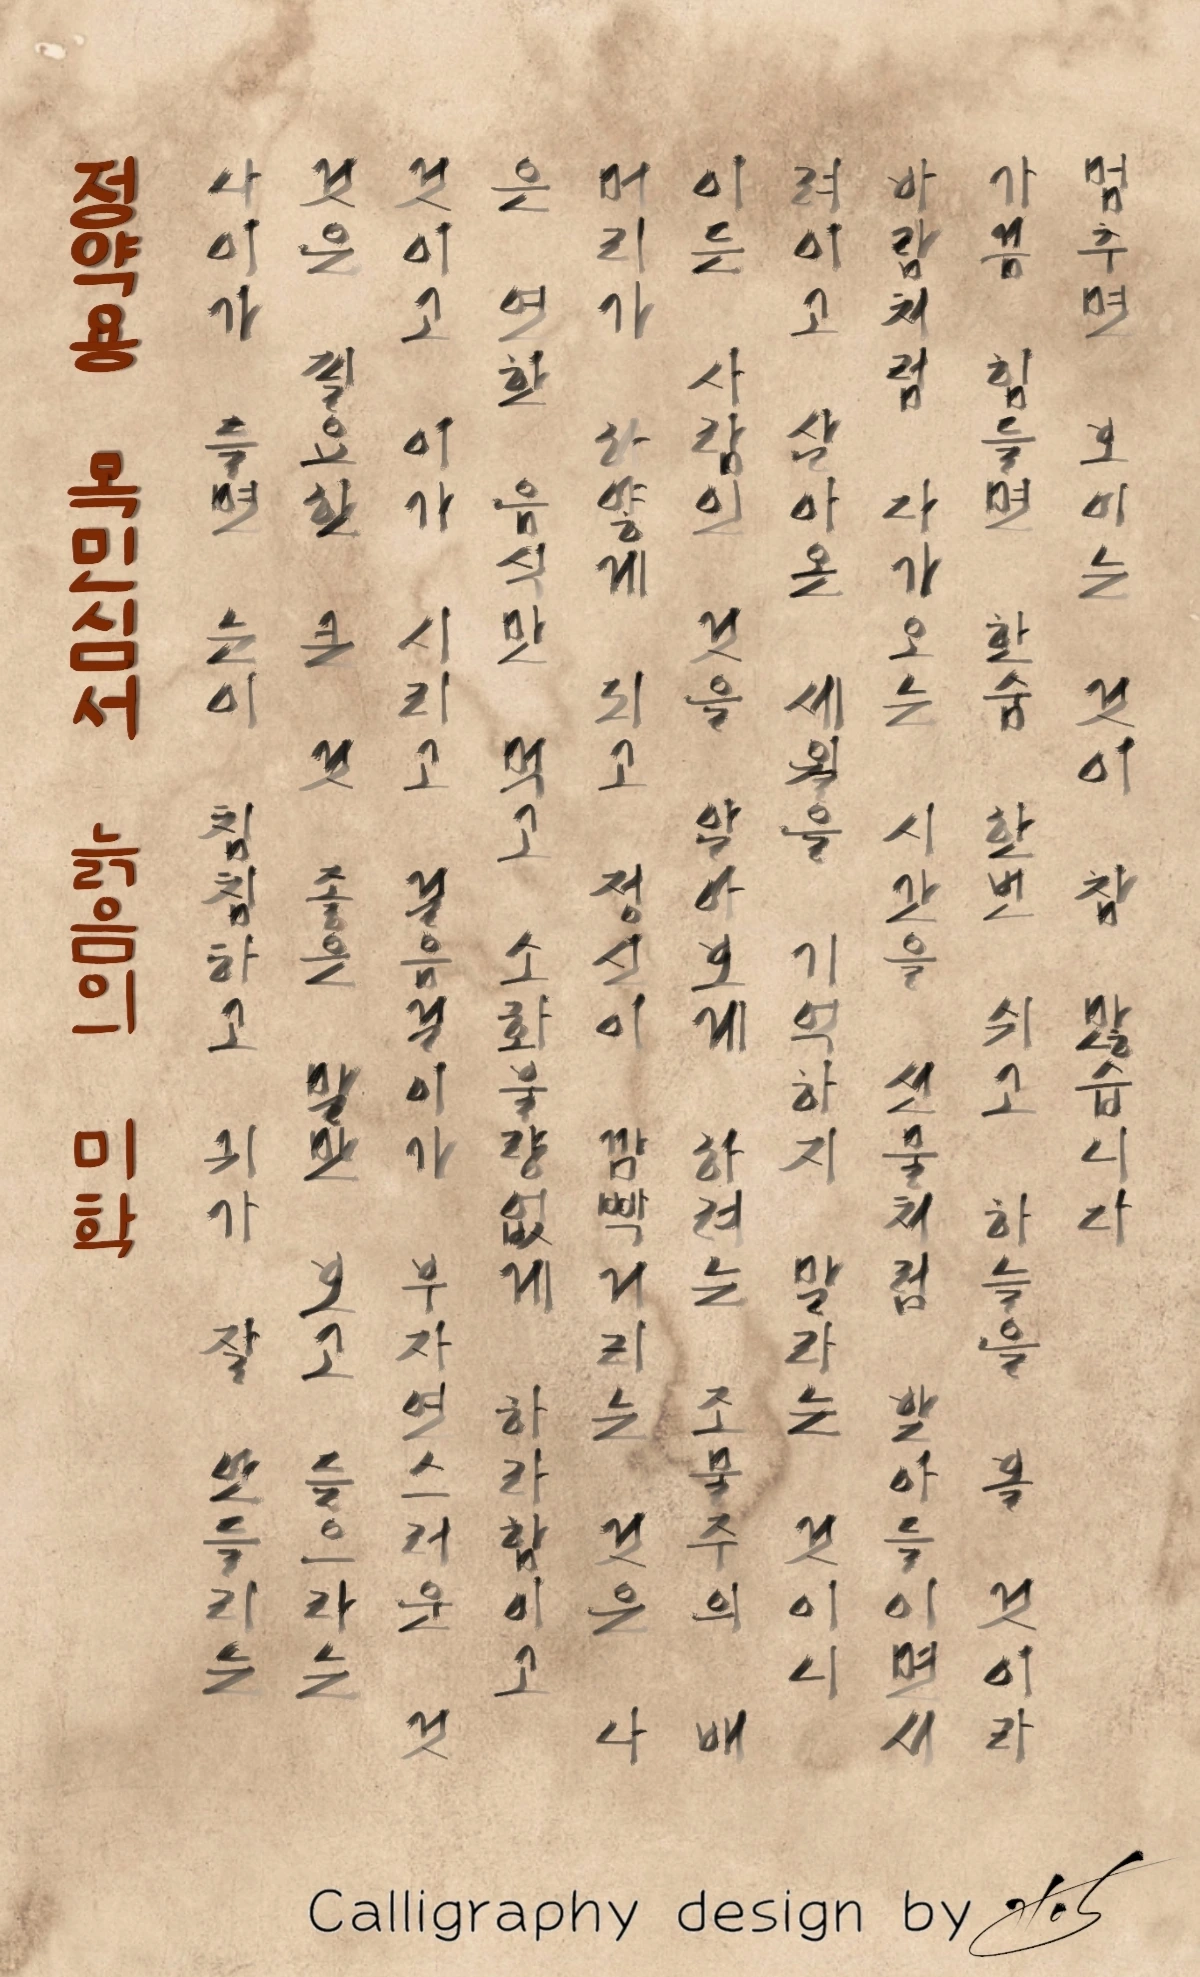 정약용 목민심서 늙음의 미학
나이가 들면 눈이 침침하고 귀가 잘 안들리는
것은 필요한 큰 것 좋은 말만 보고 들으라는
것이고 이가 시리고 걸음걸이가 부자연스러운 것
은 연한 음식만 먹고 소화불량없게 하라함이고
머리가 하얗게 되고 정신이 깜빡거리는 것은 나
이든 사람인 것을 알아보게 하려는 조물주의 배
려이고 살아온 세월을 기억하지 말라는 것이니
바람처럼 다가오는 시간을 선물처럼 받아들이면서
가끔 힘들면 한숨 한번 쉬고 하늘을 볼 것이라
멈추면 보이는 것이 참 많습니다
Calligraphy design by